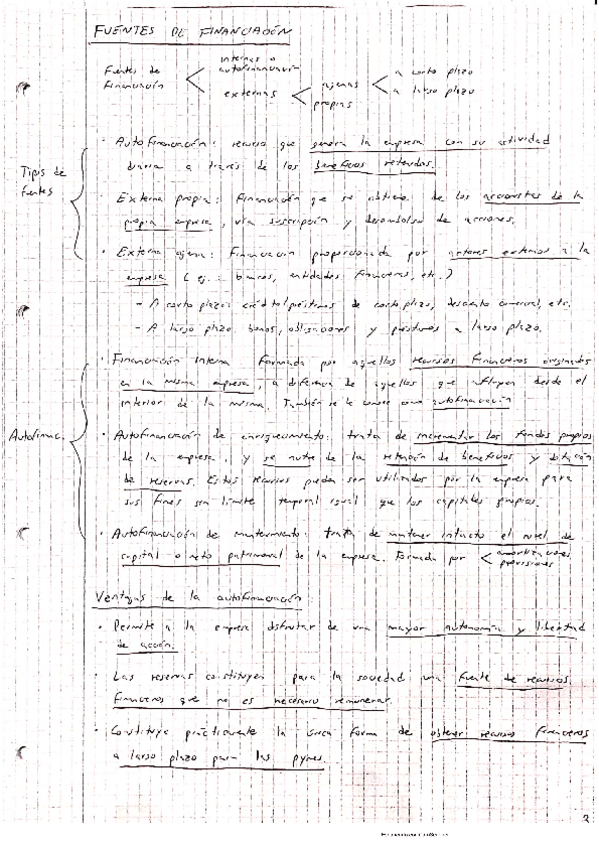 FUENTES DE FINANCIACIÓN
Fuentes de financiación
internas o autofinanciación
externas
ajenas
a corto plazo
a largo plazo
propias
Tipos de fuentes
· Autofinanciación: recurso que genera la empresa con su actividad
diaria a través de los beneficios retenidos.
· Externa propia: financiación que se obtiene de los accionistas de la
propia empresa, vía suscripción y desembolso de acciones.
· Externa ajena: financiación proporcionada por actores externos a la
empresa (ej.: bancos, entidades financieras, etc.)
- A corto plazo: crédito/préstamos de corto plazo, descuento comercial, etc.
- A largo plazo: bonos, obligaciones y préstamos a largo plazo.
Autofinanc.
· Financiación interna formada por aquellos recursos financieros originados
en la misma empresa, a diferencia de aquellos que influyen desde el
interior de la misma. También se le conoce como autofinanciación
· Autofinanciación de enriquecimiento: trata de incrementar los fondos propios
de la empresa, y se nutre de la retención de beneficios y dotación
de reservas. Estos recursos pueden ser utilizados por la empresa para
sus fines sin límite temporal igual que los capitales propios.
· Autofinanciación de mantenimiento: trata de mantener intacto el nivel de
capital o neto patrimonial de la empresa. Formada por
amortizaciones
provisiones
Ventajas de la autofinanciación
· Permite a la empresa disfrutar de una mayor autonomía y libertad
de acción.
· Las reservas constituyen para la sociedad una fuente de recursos
financieros que no es necesario remunerar.
· Constituye prácticamente la única forma de obtener recursos financieros
a largo plazo para las pymes.
3